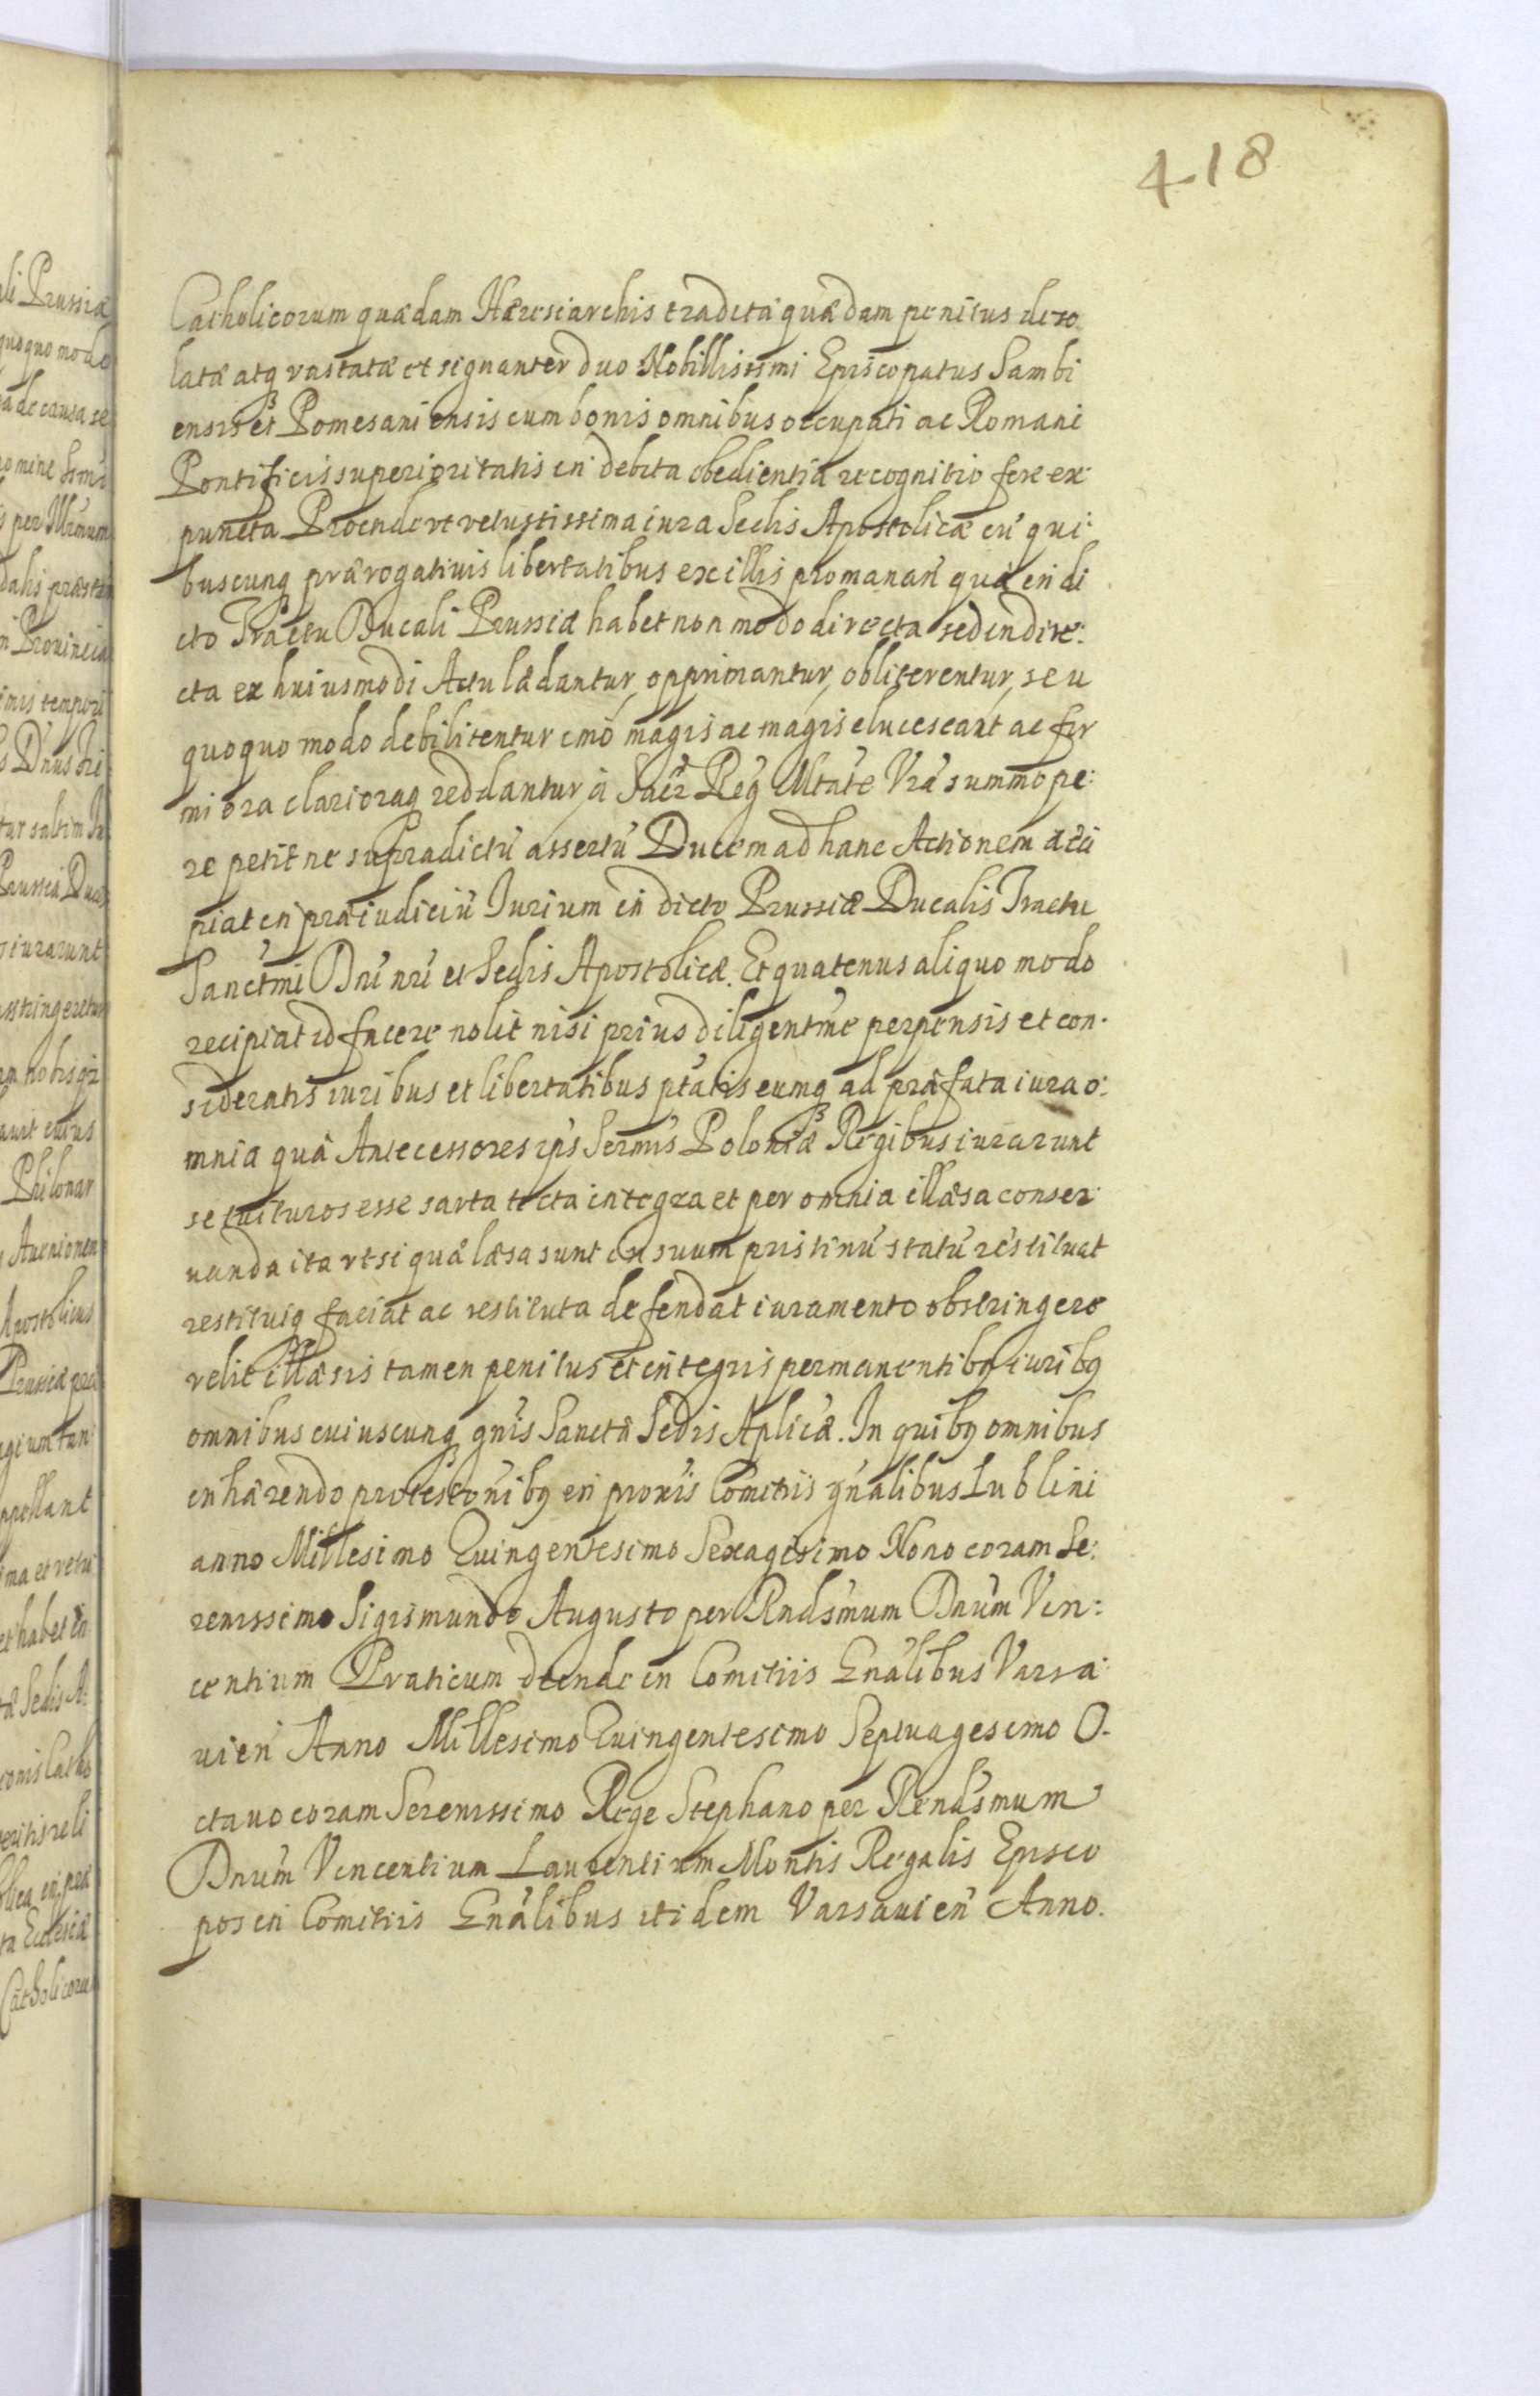 418
Catholicorum quædam Hæresiarchis tradita quædam penitus deso
latæ atq vastatæ et signanter duo Nobillissimi Episcopatus Sambi
ensis et Pomesaniensis cum bonis omnibus occupati ac Romani
Pontificis superioritatis in debita obedientia recognitio fere ex
puncta Proinde vt vetustissima iura Sedis Apostolicæ cū qui
buscunq prærogatiuis libertatibus ex illis promanan̄ quæ in di
cto Tractu Ducali Prussiæ habet non modo directa sed indire:
cta ex huiusmodi Actu lædantur, opprimantur, obliterentur, seu
quoquo modo debilitentur imò magis ac magis elucescant ac fir
miora clarioraq reddantur à Sacr̄ Reg Mtāte Vrā summope:
re petit ne supradictū assertū Ducem ad hanc Actionem acci
piat in præiudiciū Iurium in dicto Prussiæ Ducalis Tractu
Sanctmi Dnī nrī et Sedis Apostolicæ. Et quatenus aliquo modo
recipiat id facere nolit nisi prius diligentme perpensis et con-
sideratis iuribus et libertatibus ptātis eumq ad præfata iura o:
mnia quæ Antecessores ips Sermis Poloniæ Regibus iurarunt
se tuituros esse sarta tecta integra et per omnia illæsa conser
uanda ita vt si quæ læsa sunt in suum pristinū statū restituat
restituiq faciat ac restituta defendat iuramento obstringere
velit illæsis tamen penitus et integris permanentibq iuribq
omnibus cuiuscunq gnis Sanctæ Sedis Aplicæ. In quibq omnibus
inhærendo protestōnibq in proxīs Comitiis gnālibus Lublini
anno Millesimo Quingentesimo Sexagesimo Nono coram Se:
renissimo Sigismundo Augusto per Rndsmum Dnūm Vin:
centium Praticum deinde in Comitiis Gnālibus Varsa:
uien̄ Anno Millesimo Quingentesimo Septuagesimo O-
ctauo coram Serenissimo Rege Stephano per Rendsmum
Dnūm Vincentium Laurentium Montis Regalis Episco
pos in Comitiis Gnālibus itidem Varsauien̄ Anno.